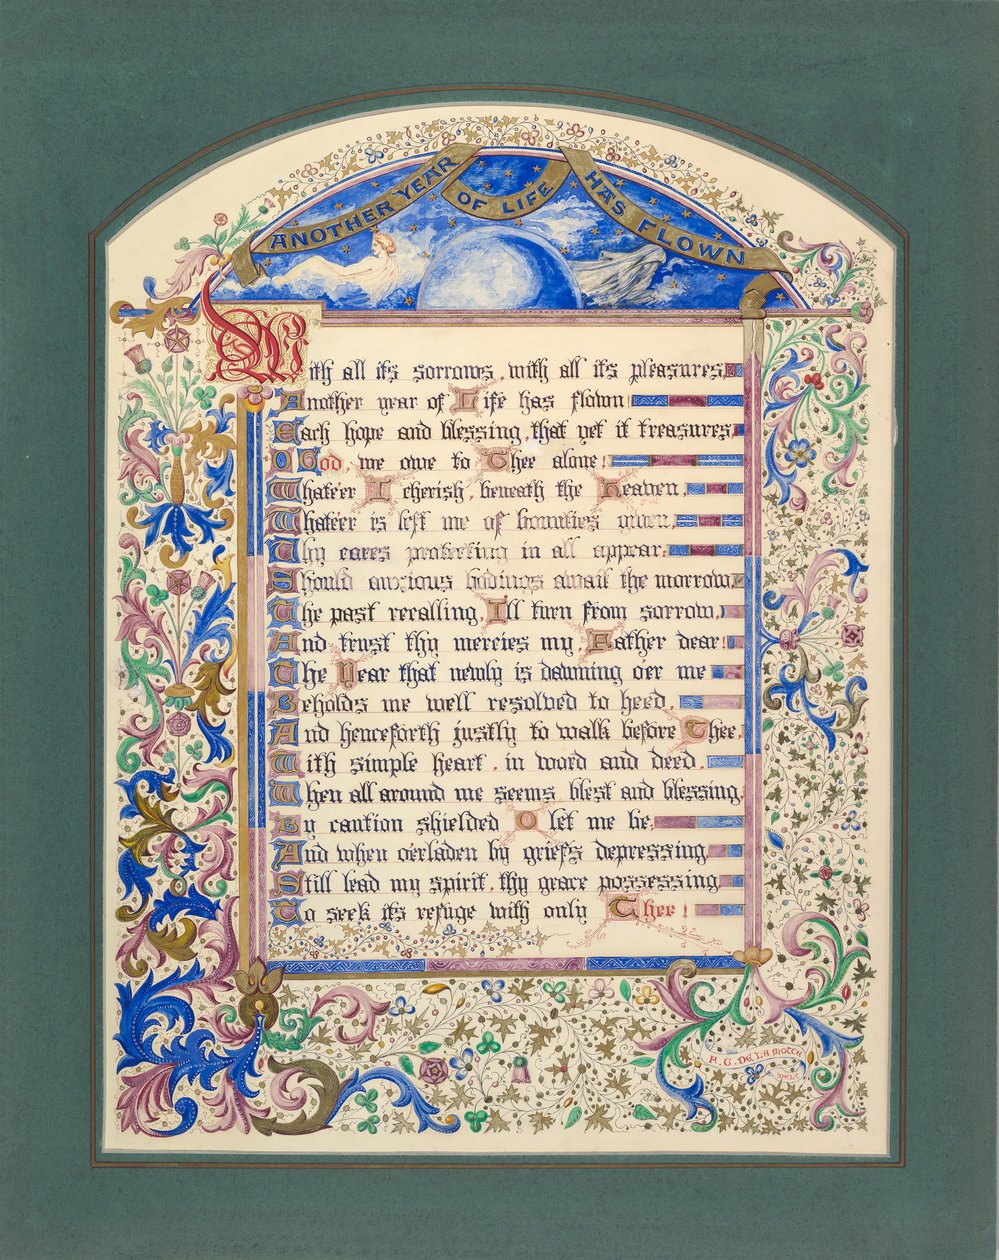 ANOTHER YEAR OF LIFE HAS FLOWN
With all it's sorrows, with all it's pleasures
Another year of Life has flown!
Each hope and blessing, that yet it treasures
O God, we owe to Thee alone!
Whate'er I cherish, beneath the Heaven,
Whate'er is left me of bounties given,
Thy cares protecting in all appear:
Should anxious bodings await the morrow
The past recalling I'll turn from sorrow,
And trust thy mercies my Father dear!
The Year that newly is dawning o'er me
Beholds me well resolved to heed,
And henceforth justly to walk before Thee,
With simple heart, in word and deed,
When all around me seems blest and blessing,
By caution shielded O let me be.
And when o'erladen by griefs depressing
Still lead my spirit, thy grace possessing
To seek it's refuge with only Thee!
F. G. DELAMOTTE